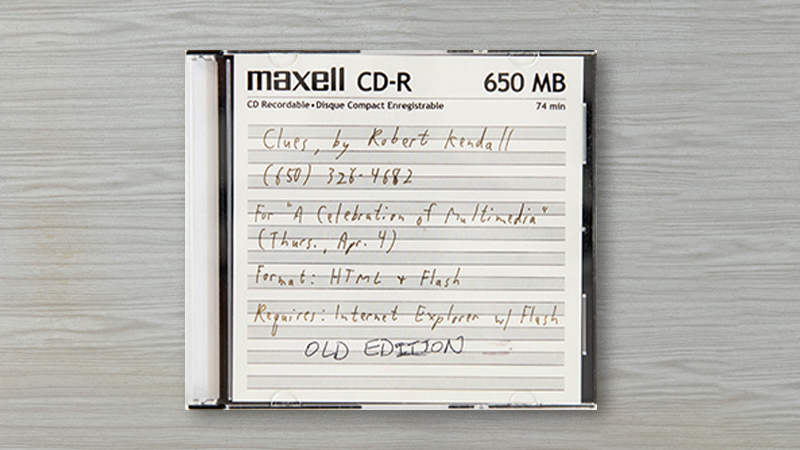 maxell CD-R 650 MB
CD Recordable•Disque Compact Enregistrable 74 min
Clues, by Robert Kendall
(650) 326-4682
For "A Celebration of Multimedia"
(Thurs., Apr. 4)
Format: HTML + Flash
Requires: Internet Explorer w/ Flash
OLD EDITION